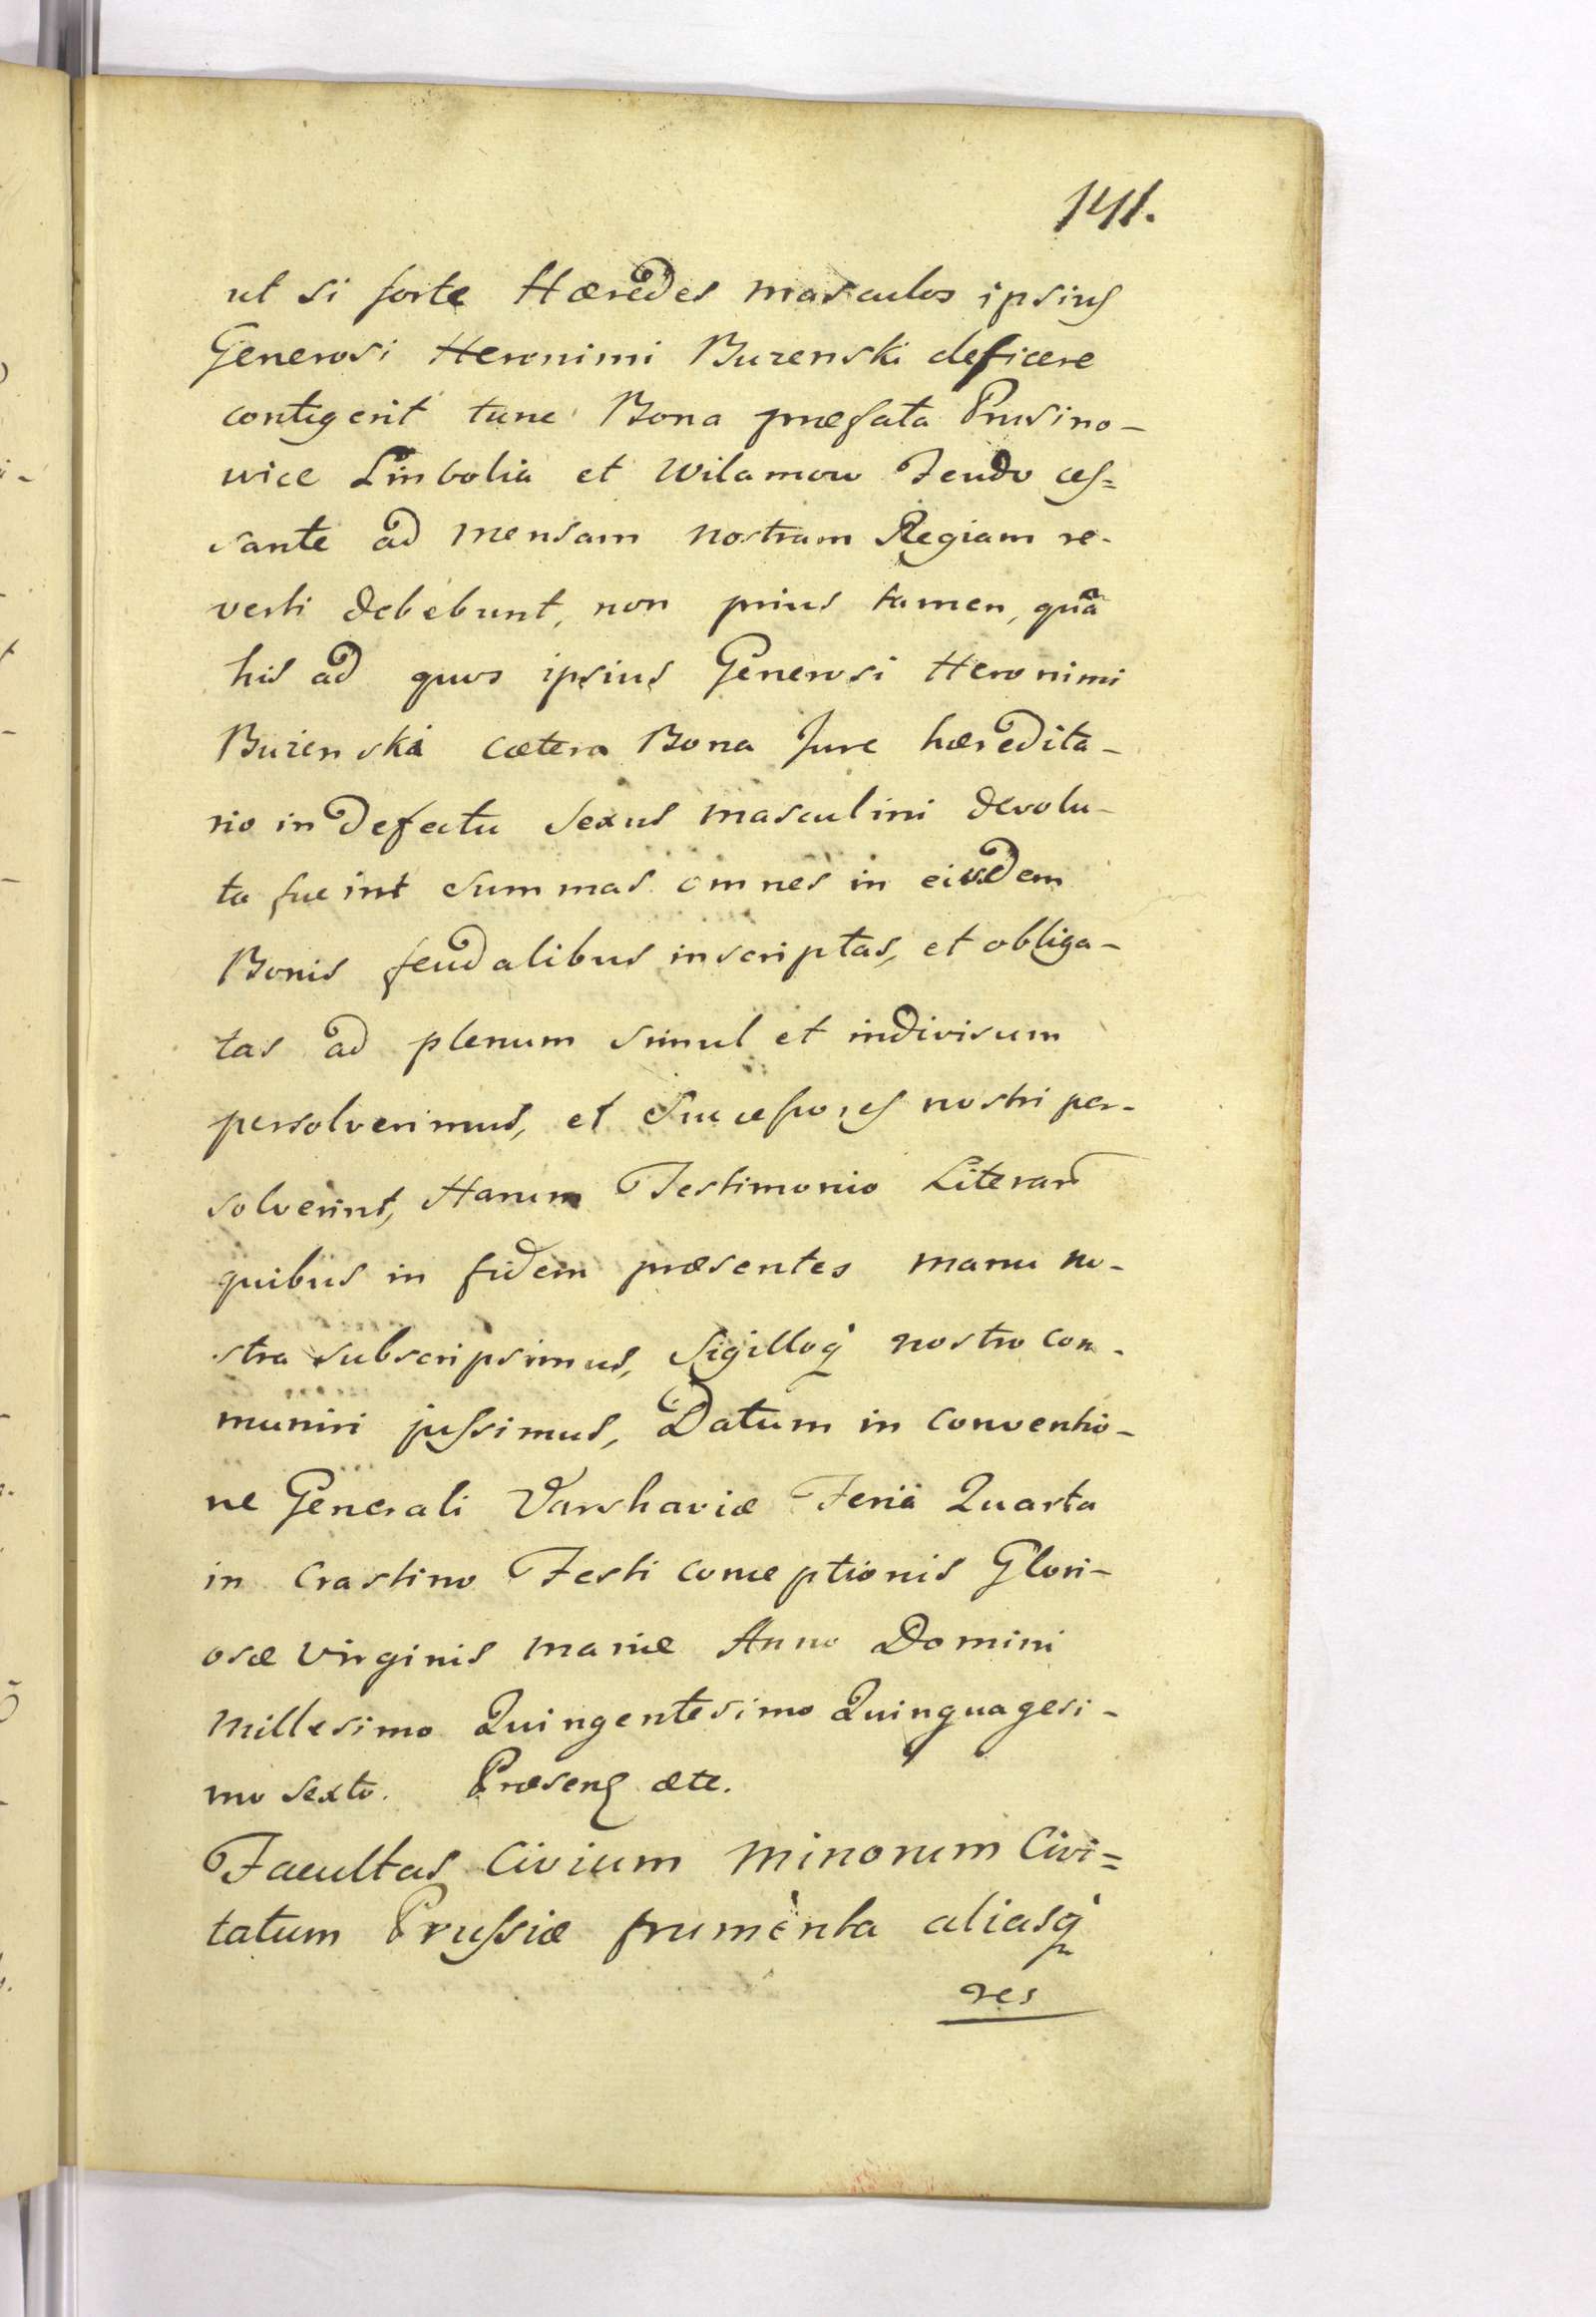 141.
ut si forte Hæredes masculos ipsius
Generosi Heronimi Buzenski deficere
contigerit tunc Bona præfata Prusino-
wice Limbolia et Wilamow Feudo ces=
sante ad mensam nostram Regiam re-
verti debebunt, non prius tamen, quã
his ad quos ipsius Generosi Heronimi
Buzenski cætera Bona Jure hæredita-
rio in defectu sexus masculini devolu-
ta fueint summas omnes in eisdem
Bonis feudalibus inscriptas, et obliga-
tas ad plenum simul et indivisum
persolverimus, et Successores nostri per-
solverint, Harum Testimonio Literar
quibus in fidem præsentes manu no-
stra subscripsimus, Sigilloq nostro com-
muniri jussimus, Datum in conventio-
ne Generali Varshaviæ Feria Quarta
in Crastino Festi conceptionis Glori-
osæ Virginis Mariæ Anno Domini
Millesimo Quingentesimo Quinquagesi-
mo Sexto. Præsen ætc.
Facultas Civium Minorum Civi=
tatum Prussiæ frumenta aliasq
res